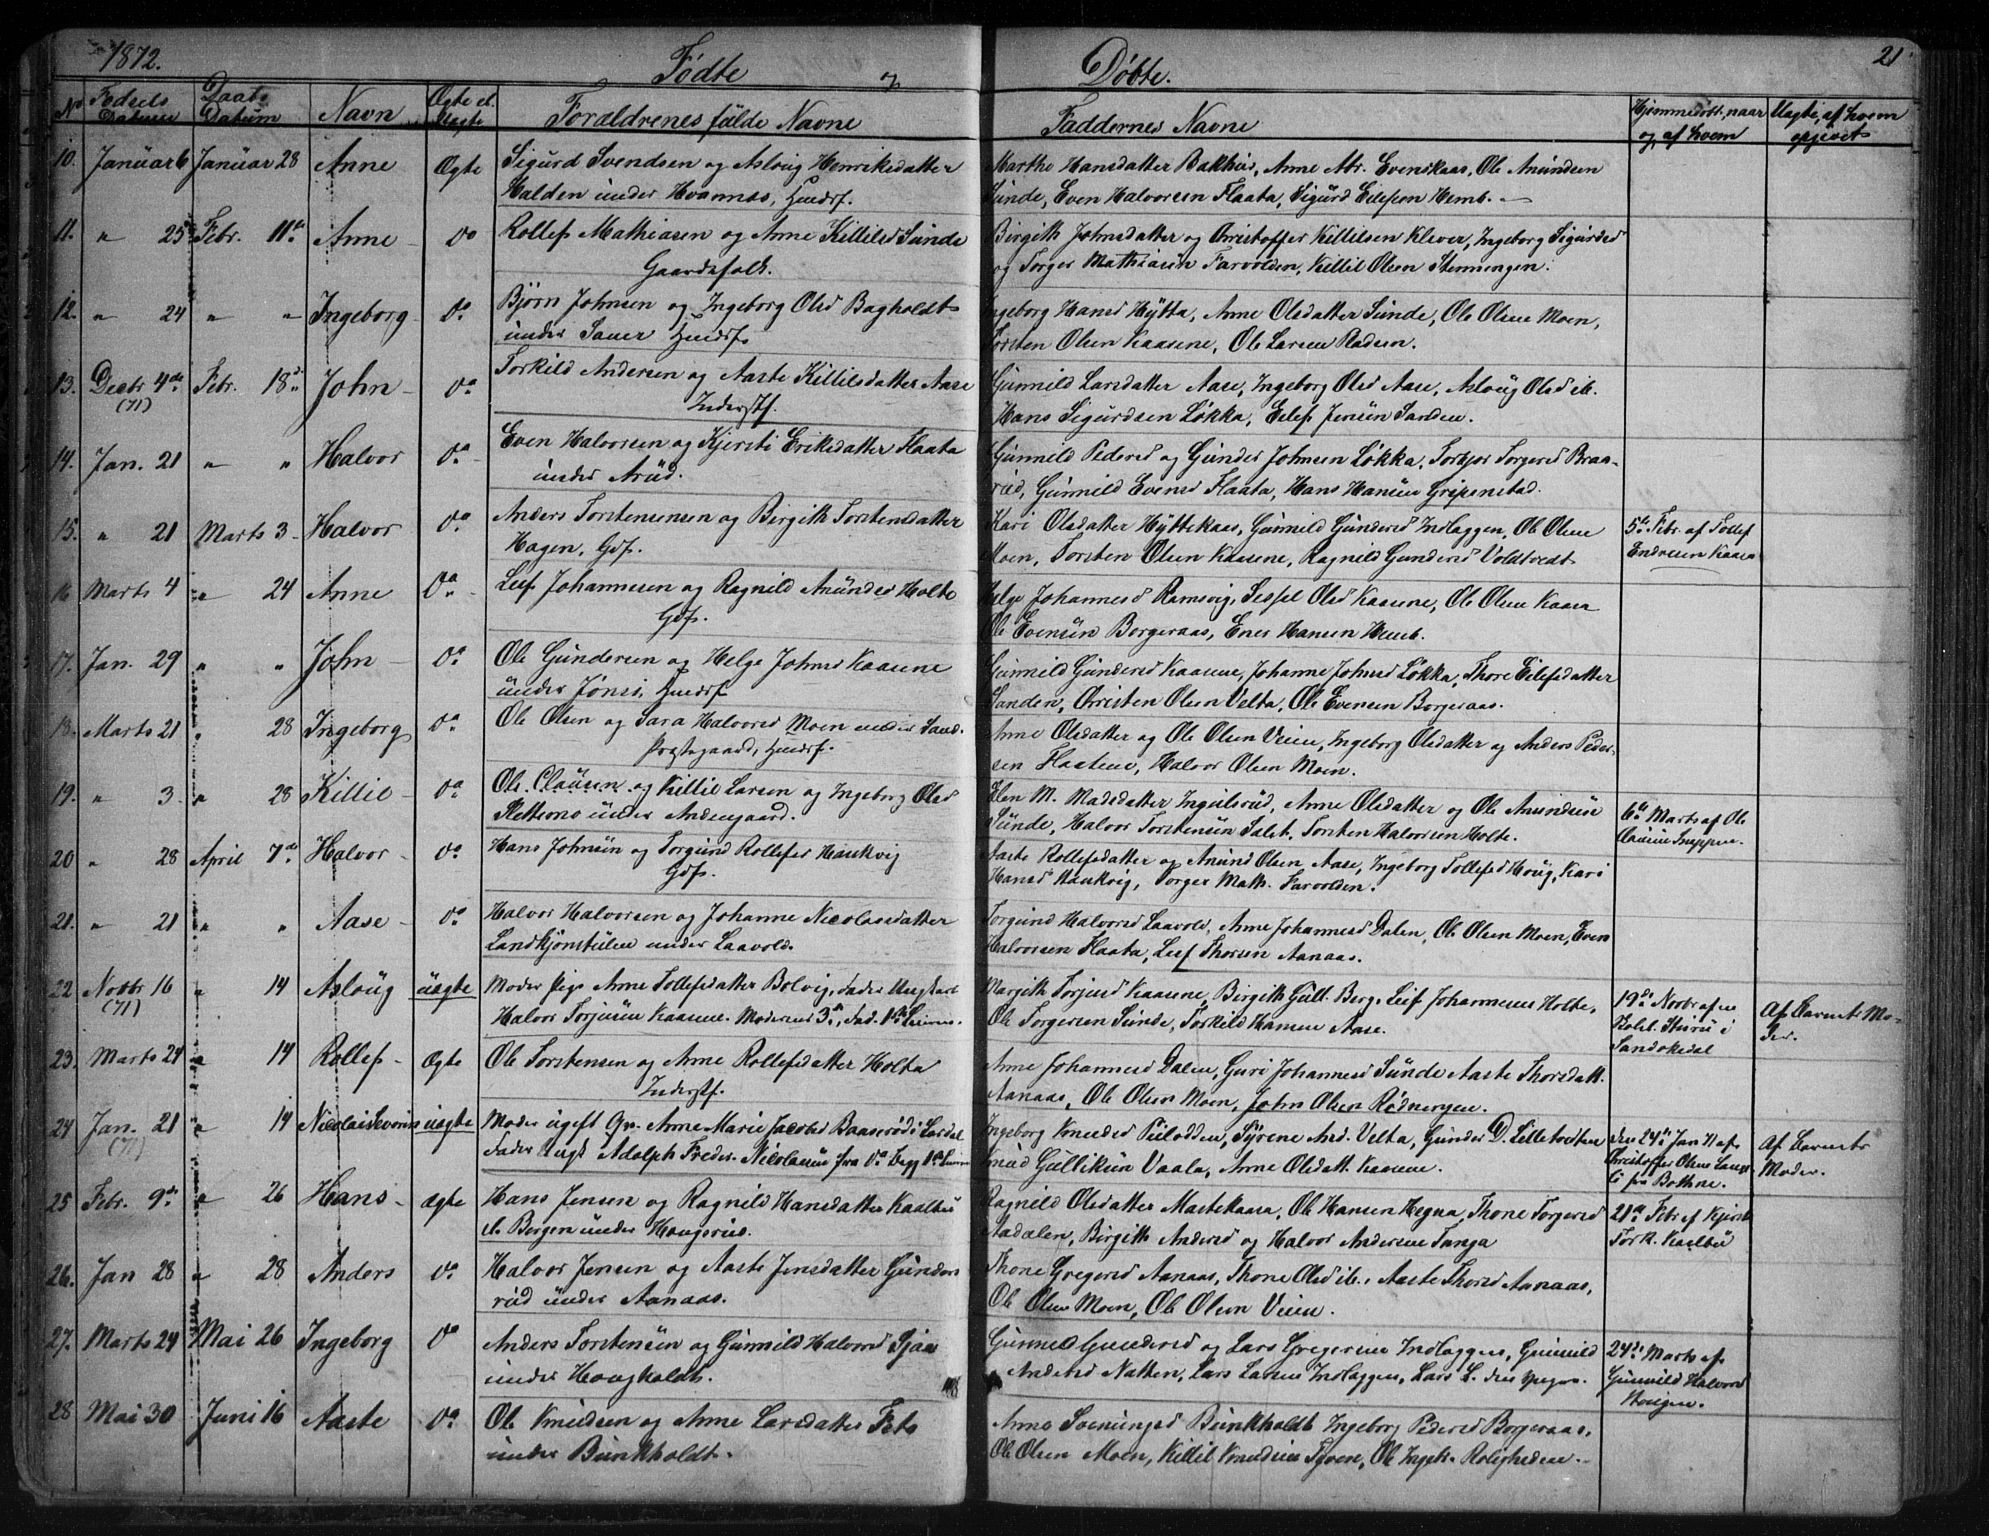 1872. Fødte og Døbte. 21
No Fødsels Datum Daabs Datum Navn Ægte el. Uægte Forældrenes fulde Navne Faddernes Navne Hjemmedøbt, naar og af hvem Uægte, af hvem opgivet
10. Januar 6 Januar 28 Anne Ægte Sigurd Svendsen og Aslaug Henriksdatter
Halden under Hvamnæs, Huusf.
Marthe Hansdatter Bakhuus, Anne Abr. Evenskaas, Ole Anundsen
Sunde, Even Halvorsen Flaata, Sigurd Eilefsen Hemb.
11. " 25 Febr. 11te Anne - Do Rollef Mathiasen og Anne Killilsd Sunde
Gaardsfolk.
Birgith Johnsdatter og Christoffer Killilsen Klever, Ingeborg Sigurdsd
og Torger Mathiasen Farvolden, Killil Olsen
12. " 24 " " Ingeborg - Do. Bjørn Johnsen og Ingeborg Olsd Bagholdt
under Sauer Huusf.
Ingeborg Hansd Hytta, Anne Olsdatter Sunde, Ole Olsen Moen,
Torsten Olsen Kaasene, Ole Larsen
13. Decbr 4de (71) Febr. 18de John - Do Torkild Andersen og Aaste Killilsdatter Aase
Inderstf.
Gunnild Larsdatter Aase, Ingeborg Olsd Aase, Aslaug Olsd ib.
Hans Sigurdsen Løkka, Eilef Jensen Sanden.
14. Jan. 21 " " Halvor Do Even Halvorsen og Kjersti Eriksdatter Flaata
under Arud.
Gunnild Pedersd og Gunder Johnsen Løkka, Torbjør Torgersd Braa-
rud, Gunnild Evensd Flaata, Hans Hansen Gripenstad.
15. " 21 Marts 3 - Halvor Do Anders Torstensensen og Birgith Torstensdatter
Hagen, Gdf.
Kari Olsdatter Hyttekaas, Gunnild Gundersd Indlaggen, Ole Olsen
Moen, Torsten Olsen Kaasene, Ragnild Gundersd Voldtvedt
5te Febr. af Tollef
Endresen Kaasa
16 Marts 4 " 24 Anne - Do Leif Johannesen og Ragnild Anundsd Holte
Gdf.
Helge Johannesd Ramsvig, Sessel Olsd Kaasene, Ole Olsen Kaasa
Ole Evensen Borgeraas, Ener Hansen Hemb.
17. Jan. 29 " " John - Do Ole Gundersen og Helge Johnsd Kaasene
under Jønsi, Huusf
Gunnild Gundersd Kaasene, Johanne Johnsd Løkka, Thore Eilefsdatter
Sanden, Christen Olsen Velta, Ole Evensen Borgeraas.
18. Marts 21 " 28 Ingeborg Do Ole Olsen og Sara Halvorsd Moen under Sand-
Præstegaard, Huusf.
Anne Olsdatter og Ole Olsen Veien, Ingeborg Olsdatter og Anders Peder-
sen Flaatene, Halvor Olsen Moen.
19. " 3 " 28 Killil - Do Ole Clausen og Killil Larsen og Ingeborg Olsd
under
Elen M. Madsdatter Ingulsrud, Anne Olsdatter og Ole Anundsen
Sunde, Halvor Torstensen Tolset, Torsten Halvorsen Holte.
6te Marts af Ole
Clausen
20 " 28 April 7de Halvor - Do Hans Johnsen og Torgund Rollefsd Haukvig
Gdf.
Aaste Rollefsdatter og Anund Olsen Aase, Ingeborg Tollefsd Houg, Kari
Hansd Haukvig, Torger Math. Farvolden.
21. " 21 " " Aase - Do Halvor Halvorsen og Johanne Nicolaisdatter
under Laavold.
Torgund Halvorsd Laavold, Anne Johannesd Dalen, Ole Olsen Moen, Even
Halvorsen Flaata, Leif Thorsen Aanaas.
22. Novbr 16 (71) " 14 Aslaug uægte Moder Pige Anne Tollefsdatter Bolvig, Fader Ungkarl
Halvor Torjusen Kaasene. Moderens 3die, Fad. 1ste
Margith Torjusd Kaasene, Birgith Gull. Berg, Leif Johannesen Holte,
Ole Torgersen Sunde, Torkild Hansen Aase.
19de Novbr af
i
Sandokedal
Af Barnets Mo-
der.
23. Marts 24 " 14 Rollef - Ægte Ole Torstensen og Anne Rollefsdatter Holta
Inderstf.
Anne Johannesd Dalen, Guri Johannesd Sunde Aaste Thorsdatt.
Aanaas, Ole Olsen Moen, John Olsen Rødningen.
24 Jan. 21 (71) " 14 Nicolai Severin uægte Moder ugift Qv. Anne Marie Jacobsd Baaserød i Lardal
Fader Ungk Adolph Freder. Nicolaisen fra Do Begg 1ste
Ingeborg Knudsd Pilodden, Syrene And. Velta, Gunder D. Lilletvedtene
Knud Gulliksen Vaala, Anne Olsdatt. Kaasene.
den 24de Jan 71 af
Christoffer Olsen
fra Bothne.
Af Barnets
Moder.
25 Febr. 9de " 26 Hans - ægte Hans Jensen og Ragnild Hansdatter Kaalbu
Bergen under Hougerud.
Ragnild Olsdatter Mastekaasa, Ole Hansen Hegna, Thone Torgersd
Aadalen, Birgith Andersd og Halvor Andersen Tanga
21de Febr af Kjersti
Tork. Kaalbu
26. Jan 28 " 28 Anders Do Halvor Jensen og Aaste Jensdatter Gunders
rud under Aanaas.
Thone Gregersd Aanaas, Thone Olsd ib., Aaste Thorsd Aanaas,
Ole Olsen Moen, Ole Olsen Veien.
27. Marts 24 Mai 26 Ingeborg Do Anders Torstensen og Gunnild Halvorsd
under Hougholdt.
Gunnild Gundersd og Lars Gregersen Indlaggen, Gunnild
Andersd Natten, Lars Larsen Indlaggen, Lars L.
24de Marts af
Gunnild Halvorsd
Haugen.
28 Mai 30 Juni 16 Aaste Do Ole Knudsen og Anne Larsdatter
under Bunkholdt.
Anne Sveinungsd Bunkholdt Ingeborg Pedersd Borgeraas,
Ole Olsen Moen, Killil Knudsen Tyvene, Ole Ingebr. Roligheden.